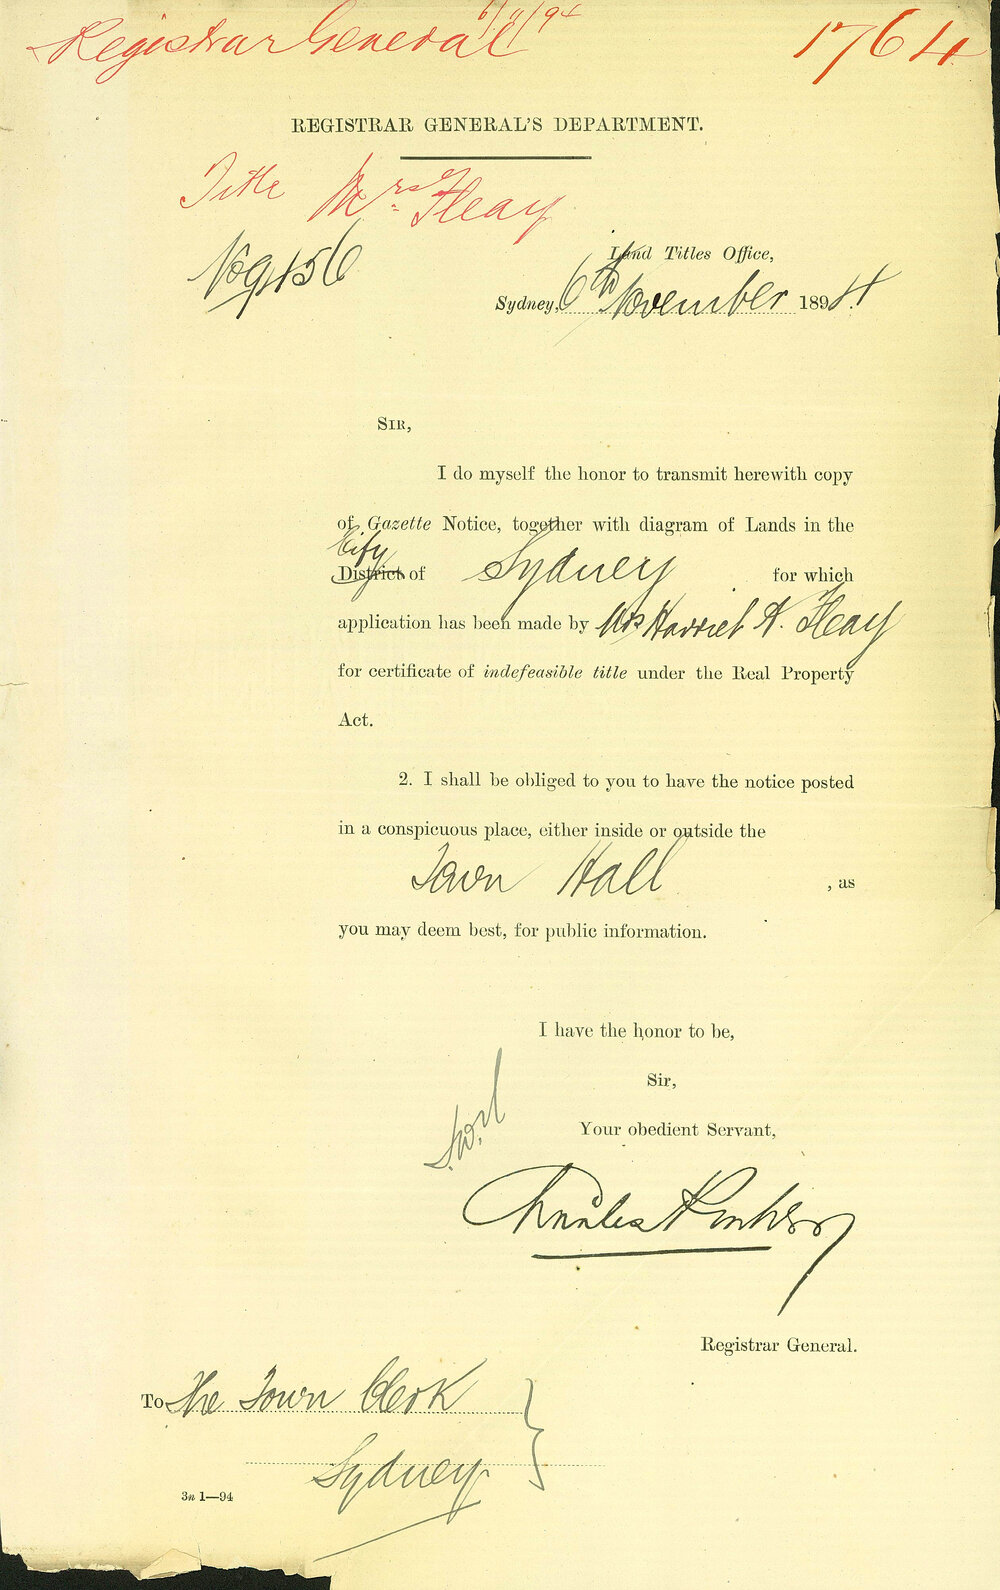 6/11/94
Registrar General 1764
REGISTRAR GENERAL'S DEPARTMENT.
Title Mrs Fleay
No 9156
Land Titles Office,
Sydney, 6th November 1894.
SIR,
I do myself the honor to transmit herewith copy
of Gazette Notice, together with diagram of Lands in the
City
District of Sydney for which
application has been made by Mrs Harriet A. Fleay
for certificate of indefeasible title under the Real Property
Act.
2. I shall be obliged to you to have the notice posted
in a conspicuous place, either inside or outside the
Town Hall , as
you may deem best, for public information.
I have the honor to be,
Sir,
Your obedient Servant,
Charles
Registrar General.
To The Town Clerk
Sydney
3n 1—94